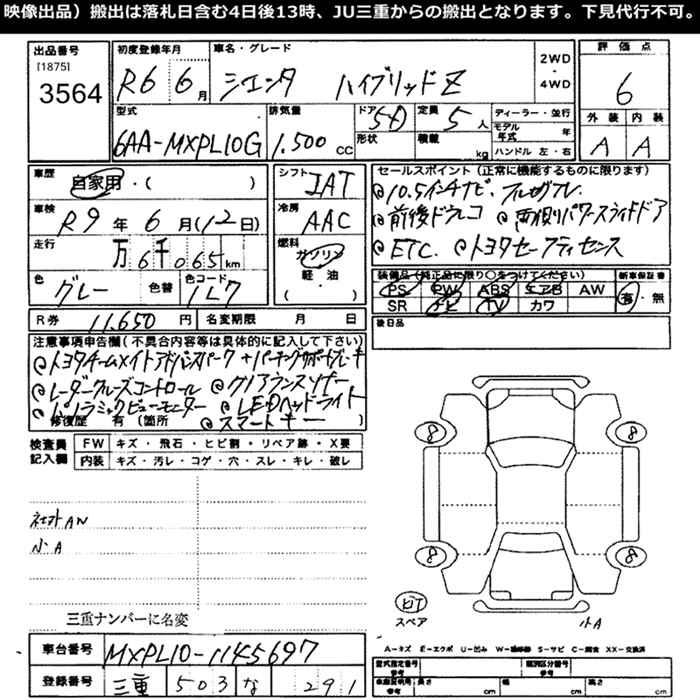 映像出品）搬出は落札日含む4日後13時、JU三重からの搬出となります。下見代行不可。
出品番号
[1875]
3564
初度登録年月
R6 6月
車名・グレード
シエンタ ハイブリッドZ
2WD
・
4WD
評価点
6
外装 内装
A A
型式
6AA-MXPL10G
排気量
1.500 cc
ドア
5D
形状
定員
5人
積載 kg
ディーラー・並行
モデル年式 年
ハンドル 左・右
車歴
自家用・( )
車検
R9年6月(12日)
走行
万6千065km
色
グレー
色替
色コード
1L7
シフト
IAT
冷房
AAC
燃料
ガソリン
軽・油
( )
セールスポイント（正常に機能するものに限ります）
◎10.5インチナビ、フルセグTV
◎前後ドラレコ ◎両側パワースライドドア
◎ETC. ◎トヨタセーフティセンス
装備品（純正品に限り○をつけてください）
PS PW ABS エアB AW
SR ナビ TV カワ
新車保証書
有・無
後日品
R券 11,650円
名変期限 月 日
注意事項申告欄(不具合内容等は具体的に記入して下さい)
◎トヨタチームメイトアドバンスパーク+パーキングサポートブレーキ
◎レーダークルーズコントロール ◎クリアランスソナー
◎パノラミックビューモニター ◎LEDヘッドライト
修復歴 有(箇所 ◎スマートキー )
検査員記入欄
FW キズ・飛石・ヒビ割・リペア跡・X要
内装 キズ・汚レ・コゲ・穴・スレ・キレ・破レ
小A
三重ナンバーに名変
8
8
8
8
スペア
小A
A-キズ E-エクボ U-凹み W-補修跡 S-サビ C-腐食 XX-交換済
車台番号
MXPL10-1145697
登録番号
三重 503 な 291
型式指定番号
参考
類別区分番号
参考
車庫証明用
参考
長さ cm
幅 cm
高さ cm